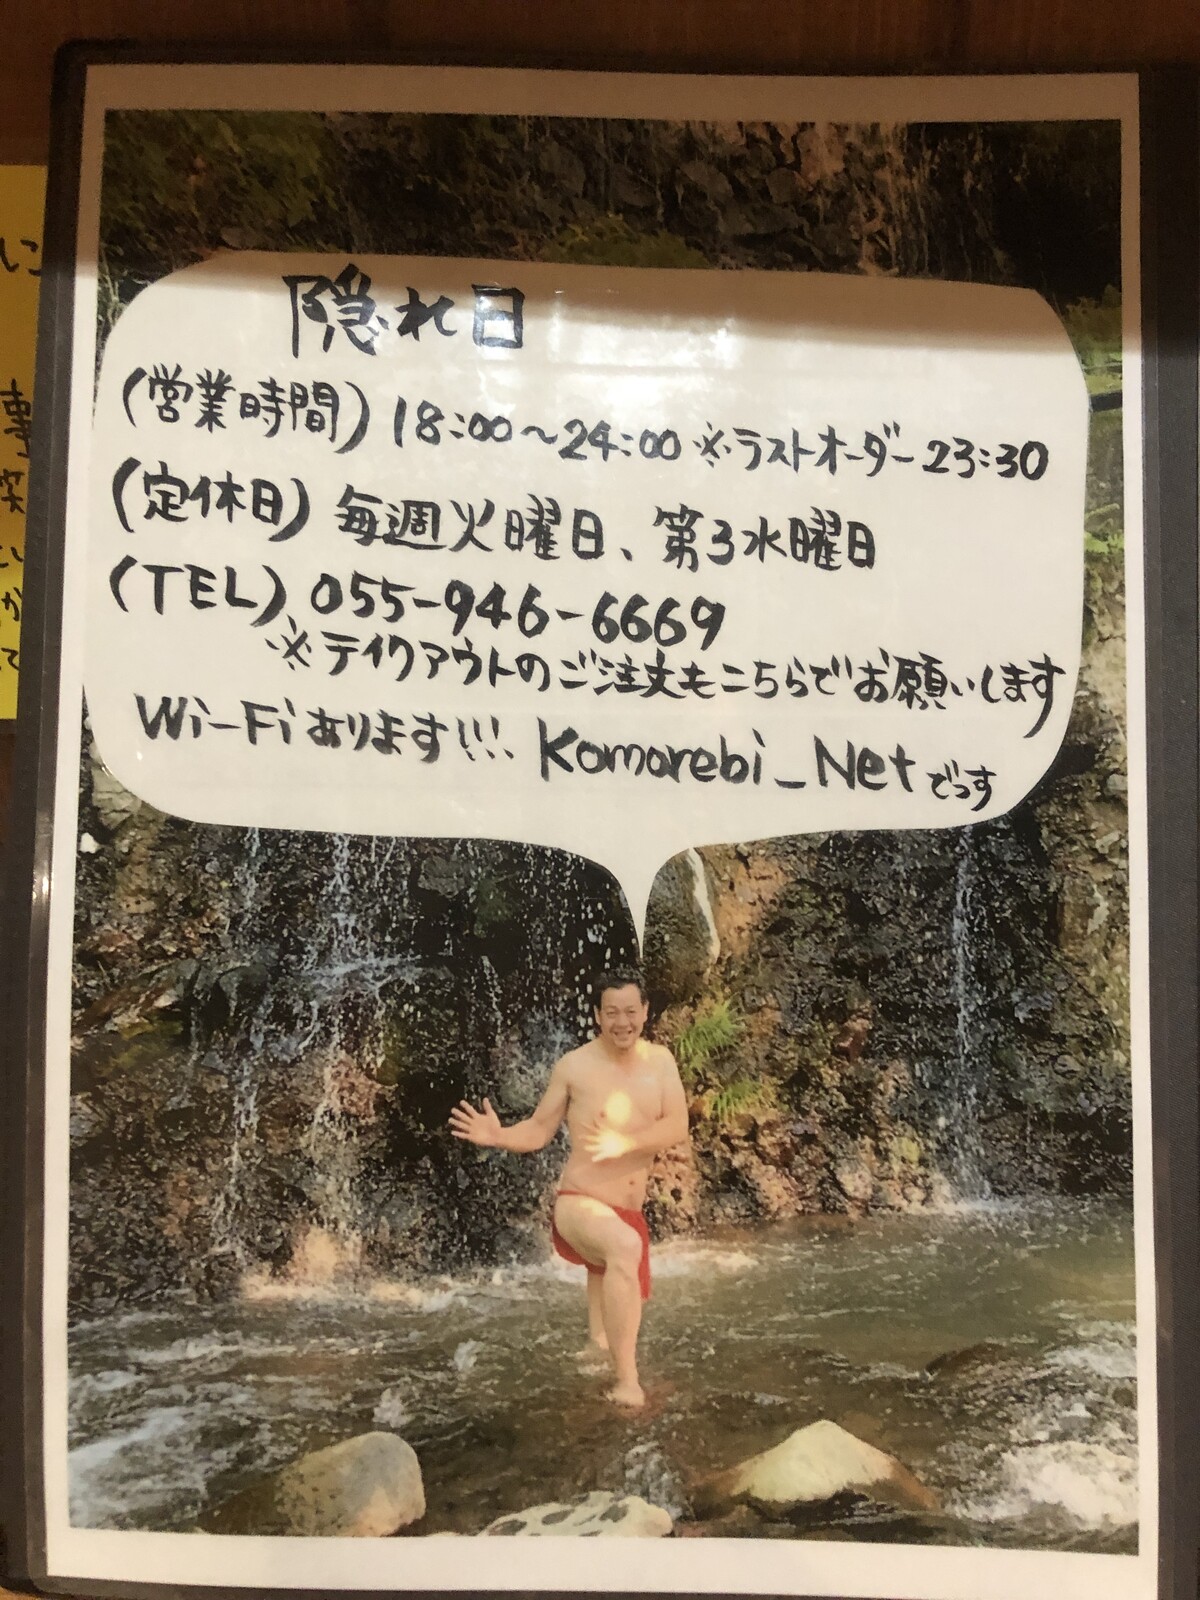 隠れ日
(営業時間) 18:00〜24:00 ※ラストオーダー23:30
(定休日) 毎週火曜日、第3水曜日
(TEL) 055-946-6669
※テイクアウトのご注文もこちらでお願いします
Wi-Fiあります!!! Komorebi_Netでっす